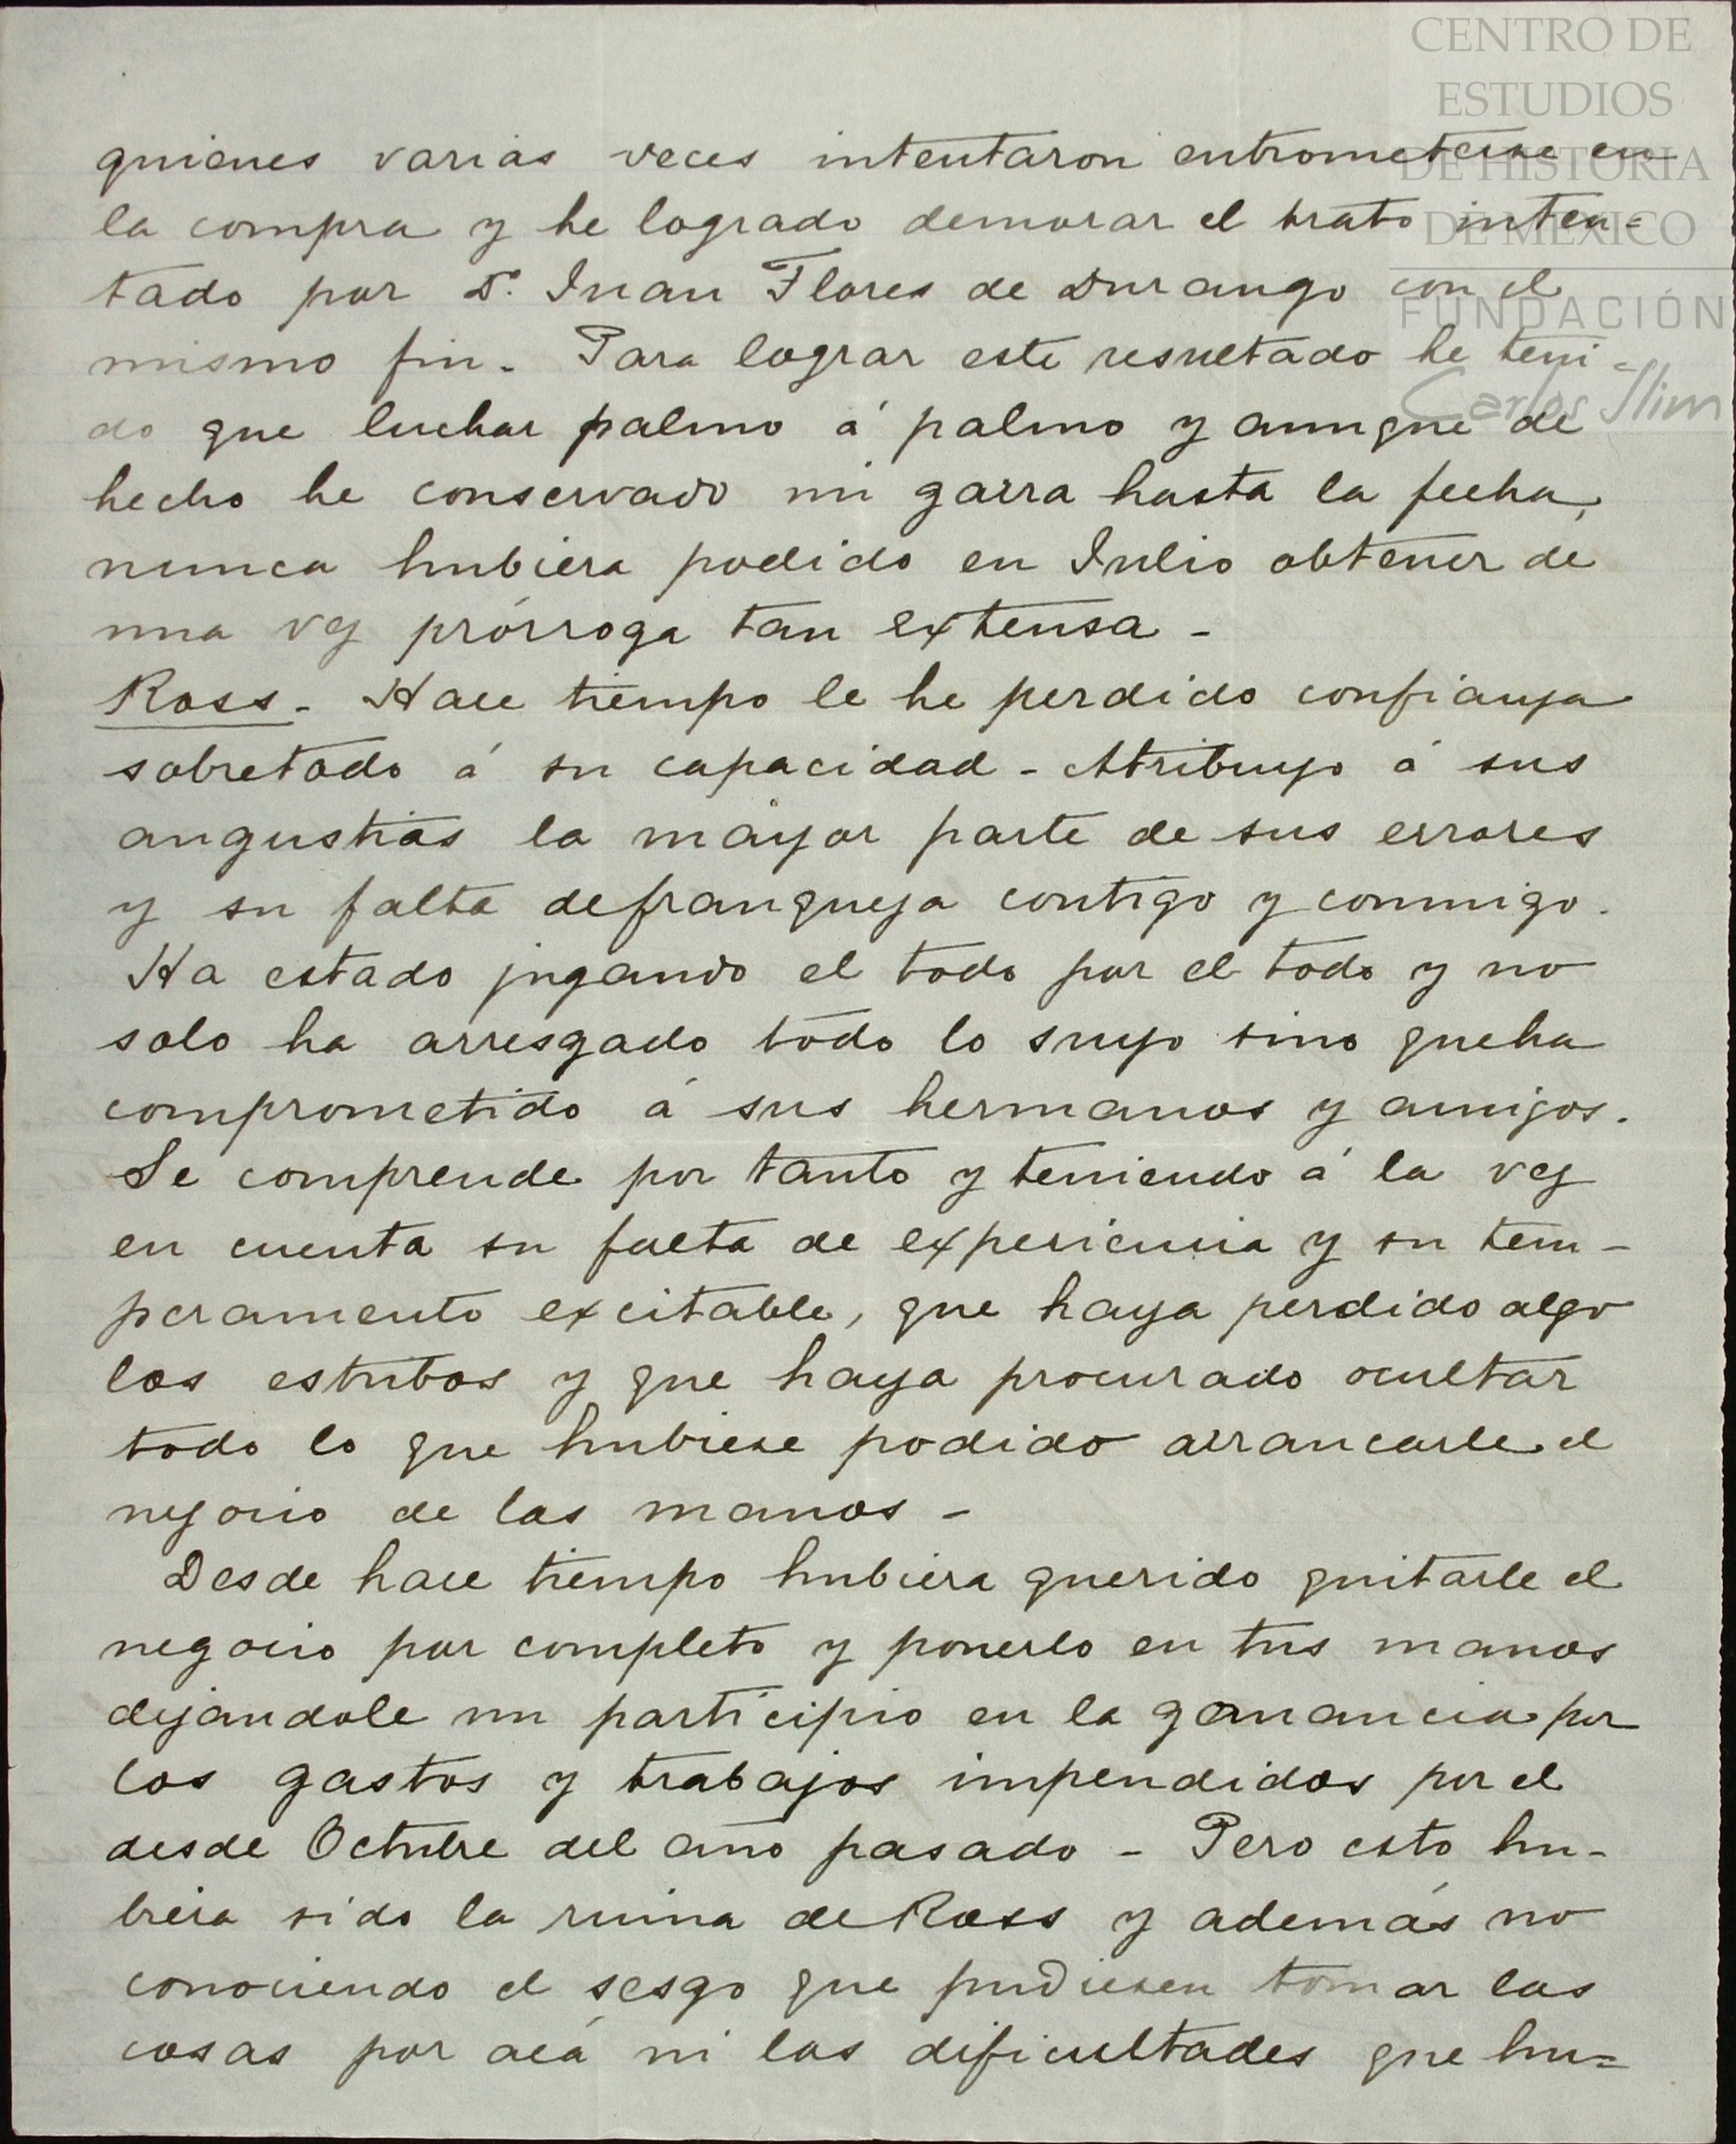 CENTRO DE
ESTUDIOS
DE HISTORIA
DE MÉXICO
FUNDACIÓN
Carlos Slim
quienes varias veces intentaron entrometerse en
la compra y he logrado demorar el trato inten-
tado por D. Juan Flores de Durango con el
mismo fin. Para lograr este resultado he teni-
do que luchar palmo á palmo y aunque de
hecho he conservado mi garra hasta la fecha,
nunca hubiera podido en Julio obtener de
una vez prórroga tan extensa -
Ross - Hace tiempo le he perdido confianza
sobretodo á su capacidad - Atribuyo á sus
angustias la mayor parte de sus errores
y su falta de franqueza contigo y conmigo.
Ha estado jugando el todo por el todo y no
solo ha arresgado todo lo suyo sino que ha
comprometido á sus hermanos y amigos.
Se comprende por tanto y teniendo á la vez
en cuenta su falta de experiencia y su tem-
peramento excitable, que haya perdido algo
los estribos y que haya procurado ocultar
todo lo que hubiese podido arrancarle el
negocio de las manos -
Desde hace tiempo hubiera querido quitarle el
negocio por completo y ponerlo en tus manos
dejandole un participio en la ganancia por
los gastos y trabajos impendidos por el
desde Octubre del año pasado - Pero esto hu-
biera sido la ruina de Ross y además no
conociendo el sesgo que pudiesen tomar las
cosas por acá ni las dificultades que hu=